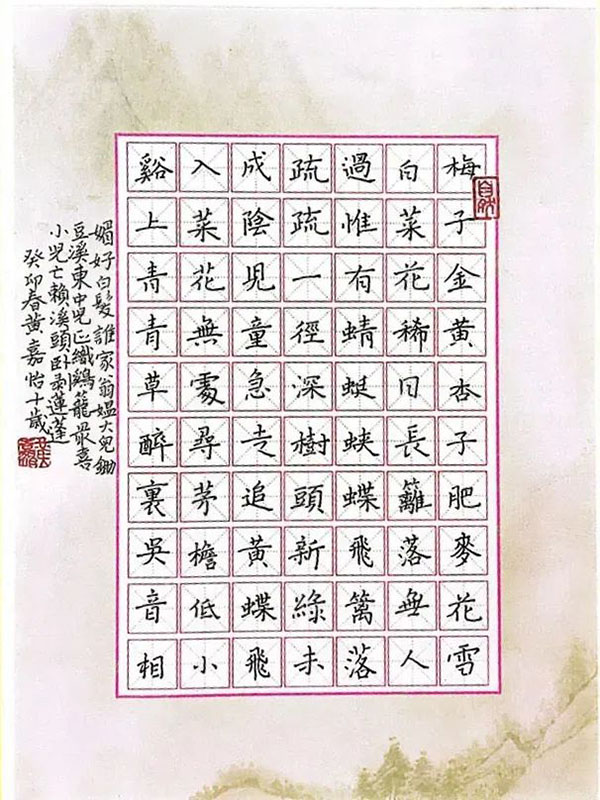 梅子金黄杏子肥麥花雪
白菜花稀日長籬落無人
過惟有蜻蜓蛺蝶飛篱落
疏疏一徑深樹頭新綠未
成陰兒童急走追黄蝶飛
入菜花無處尋茅檐低小
谿上青青草醉裏吳音相
媚好白髮誰家翁媼大兒鋤
豆溪東中兒正織鷄籠最喜
小兒亡賴溪頭卧剥蓮蓬
癸卯春黄嘉怡十歲
自然